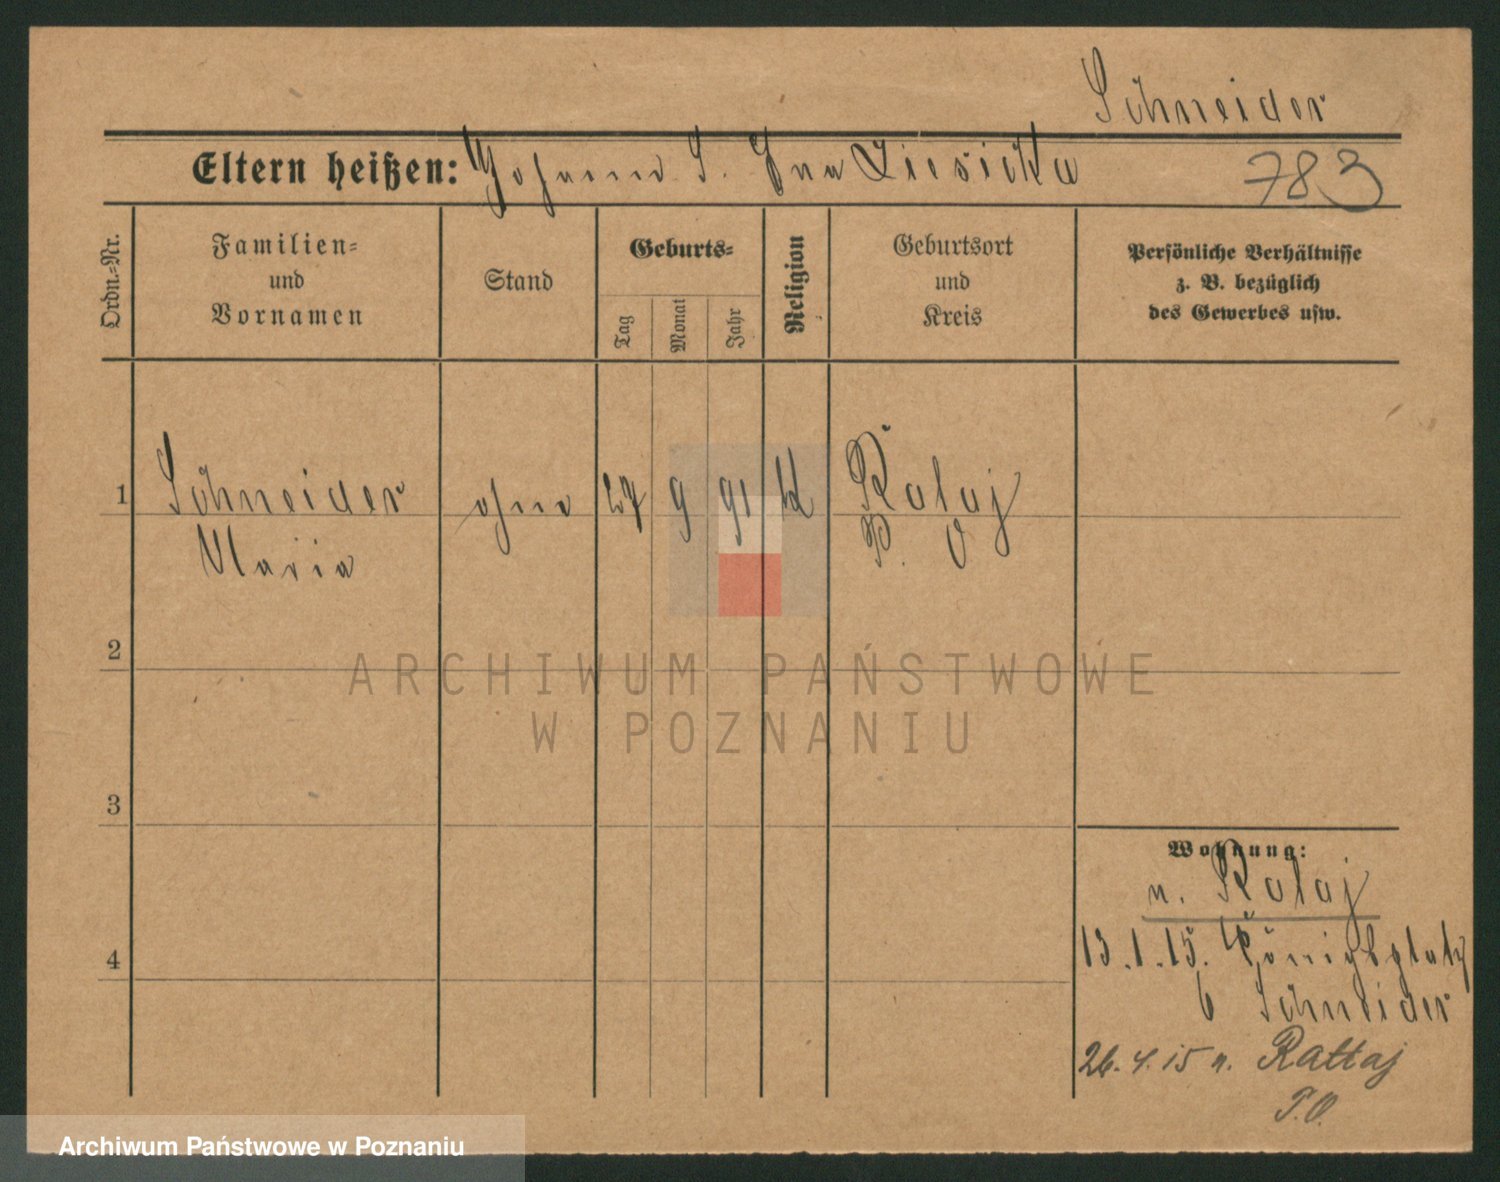 Schneider
Eltern heißen: Johann S. Ziesicka
783
Ordn.-Nr.
Familien-
und
Vornamen
Stand
Geburts-
Tag
Monat
Jahr
Religion
Geburtsort
und
Kreis
Persönliche Verhältnisse
z. B. bezüglich
des Gewerbes usw.
1
Schneider
Maria
ohne
9
91
k
Rataj
P. O
2
3
4
Wohnung:
n. Rataj
13.1.15. Königsplatz
6 Schneider
26.4.15 n. Rattaj
P.O.
ARCHIWUM PAŃSTWOWE
W POZNANIU
Archiwum Państwowe w Poznaniu